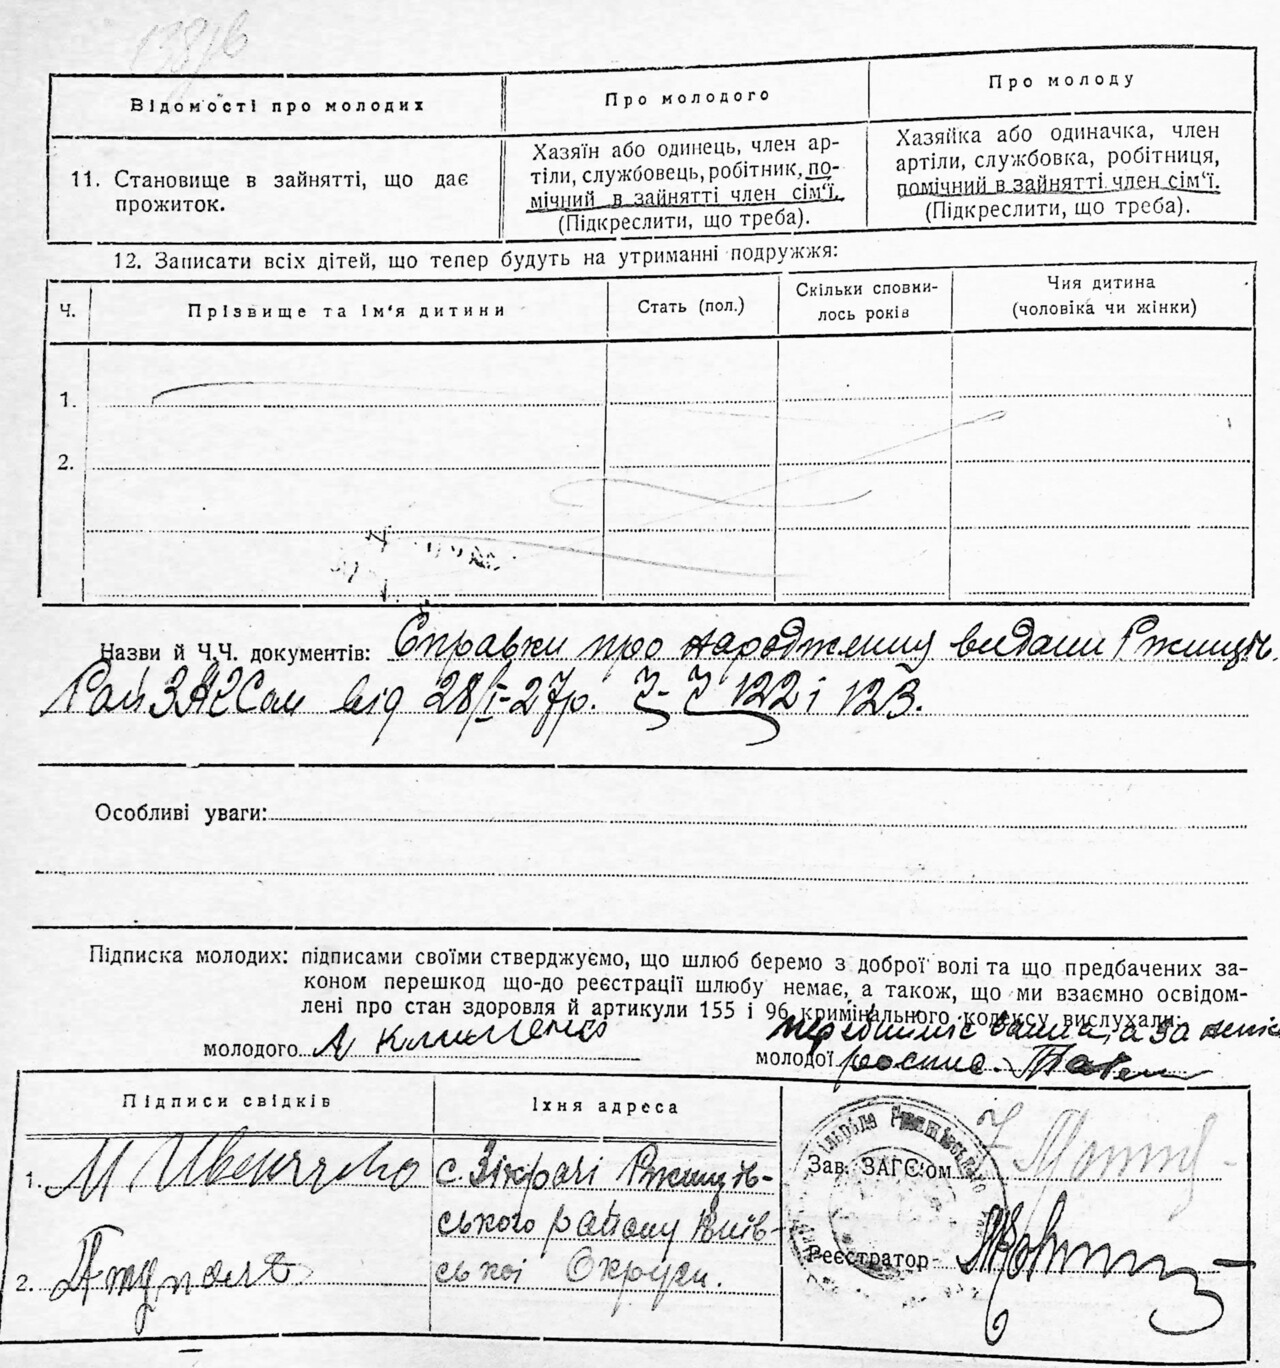 138/в
Відомості про молодих
Про молодого
Про молоду
11. Становище в зайнятті, що дає
прожиток.
Хазяїн або одинець, член ар-
тіли, службовець, робітник, по-
мічний в зайнятті член сім'ї.
(Підкреслити, що треба).
Хазяйка або одиначка, член
артіли, службовка, робітниця,
помічний в зайнятті член сім'ї.
(Підкреслити, що треба).
12. Записати всіх дітей, що тепер будуть на утриманні подружжя:
Ч.
Прізвище та ім'я дитини
Стать (пол.)
Скільки сповни-
лось років
Чия дитина
(чоловіка чи жінки)
1.
2.
Назви й Ч.Ч. документів: Справки про народження видани Ржищів.
Рай ЗАГСом від 28/I-27р. Ч-Ч 122 і 123.
Особливі уваги:
Підписка молодих: підписами своїми стверджуємо, що шлюб беремо з доброї волі та що предбачених за-
коном перешкод що-до реєстрації шлюбу немає, а також, що ми взаємно освідом-
лені про стан здоровля й артикули 155 і 96 кримінального кодексу вислухали:
молодого А Клименко
молодої а за роспис.
Підписи свідків
Їхня адреса
1. М
с. Зікрачі Ржищів-
ського району Київ-
ськоі Округи.
2.
Зав. ЗАГС'ом
Реєстратор